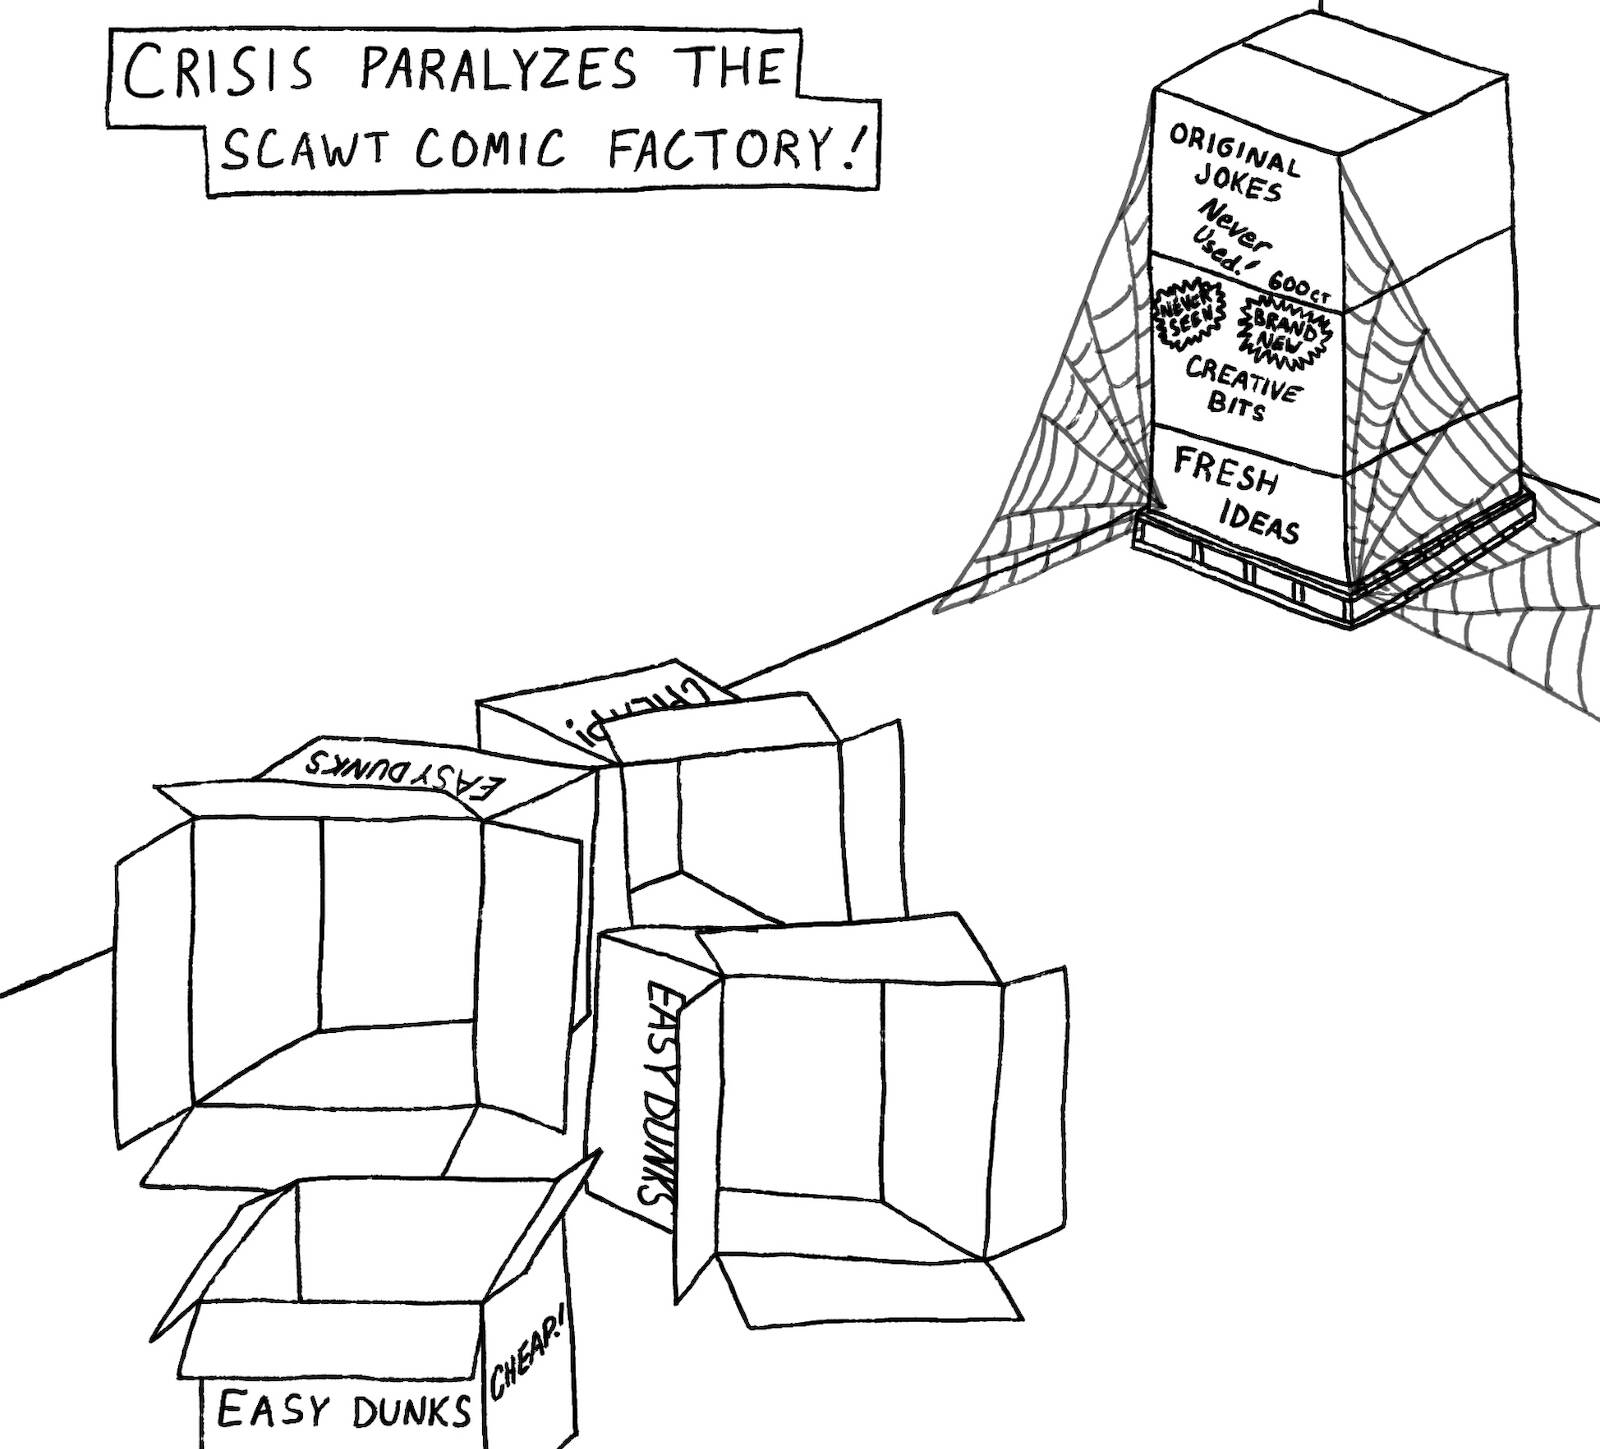 CRISIS PARALYZES THE
SCAWT COMIC FACTORY!
ORIGINAL
JOKES
Never
Used!
600CT
NEVER
SEEN
BRAND
NEW
CREATIVE
BITS
FRESH
IDEAS
CHEAP!
EASY DUNKS
EASY DUNKS
CHEAP!
EASY DUNKS